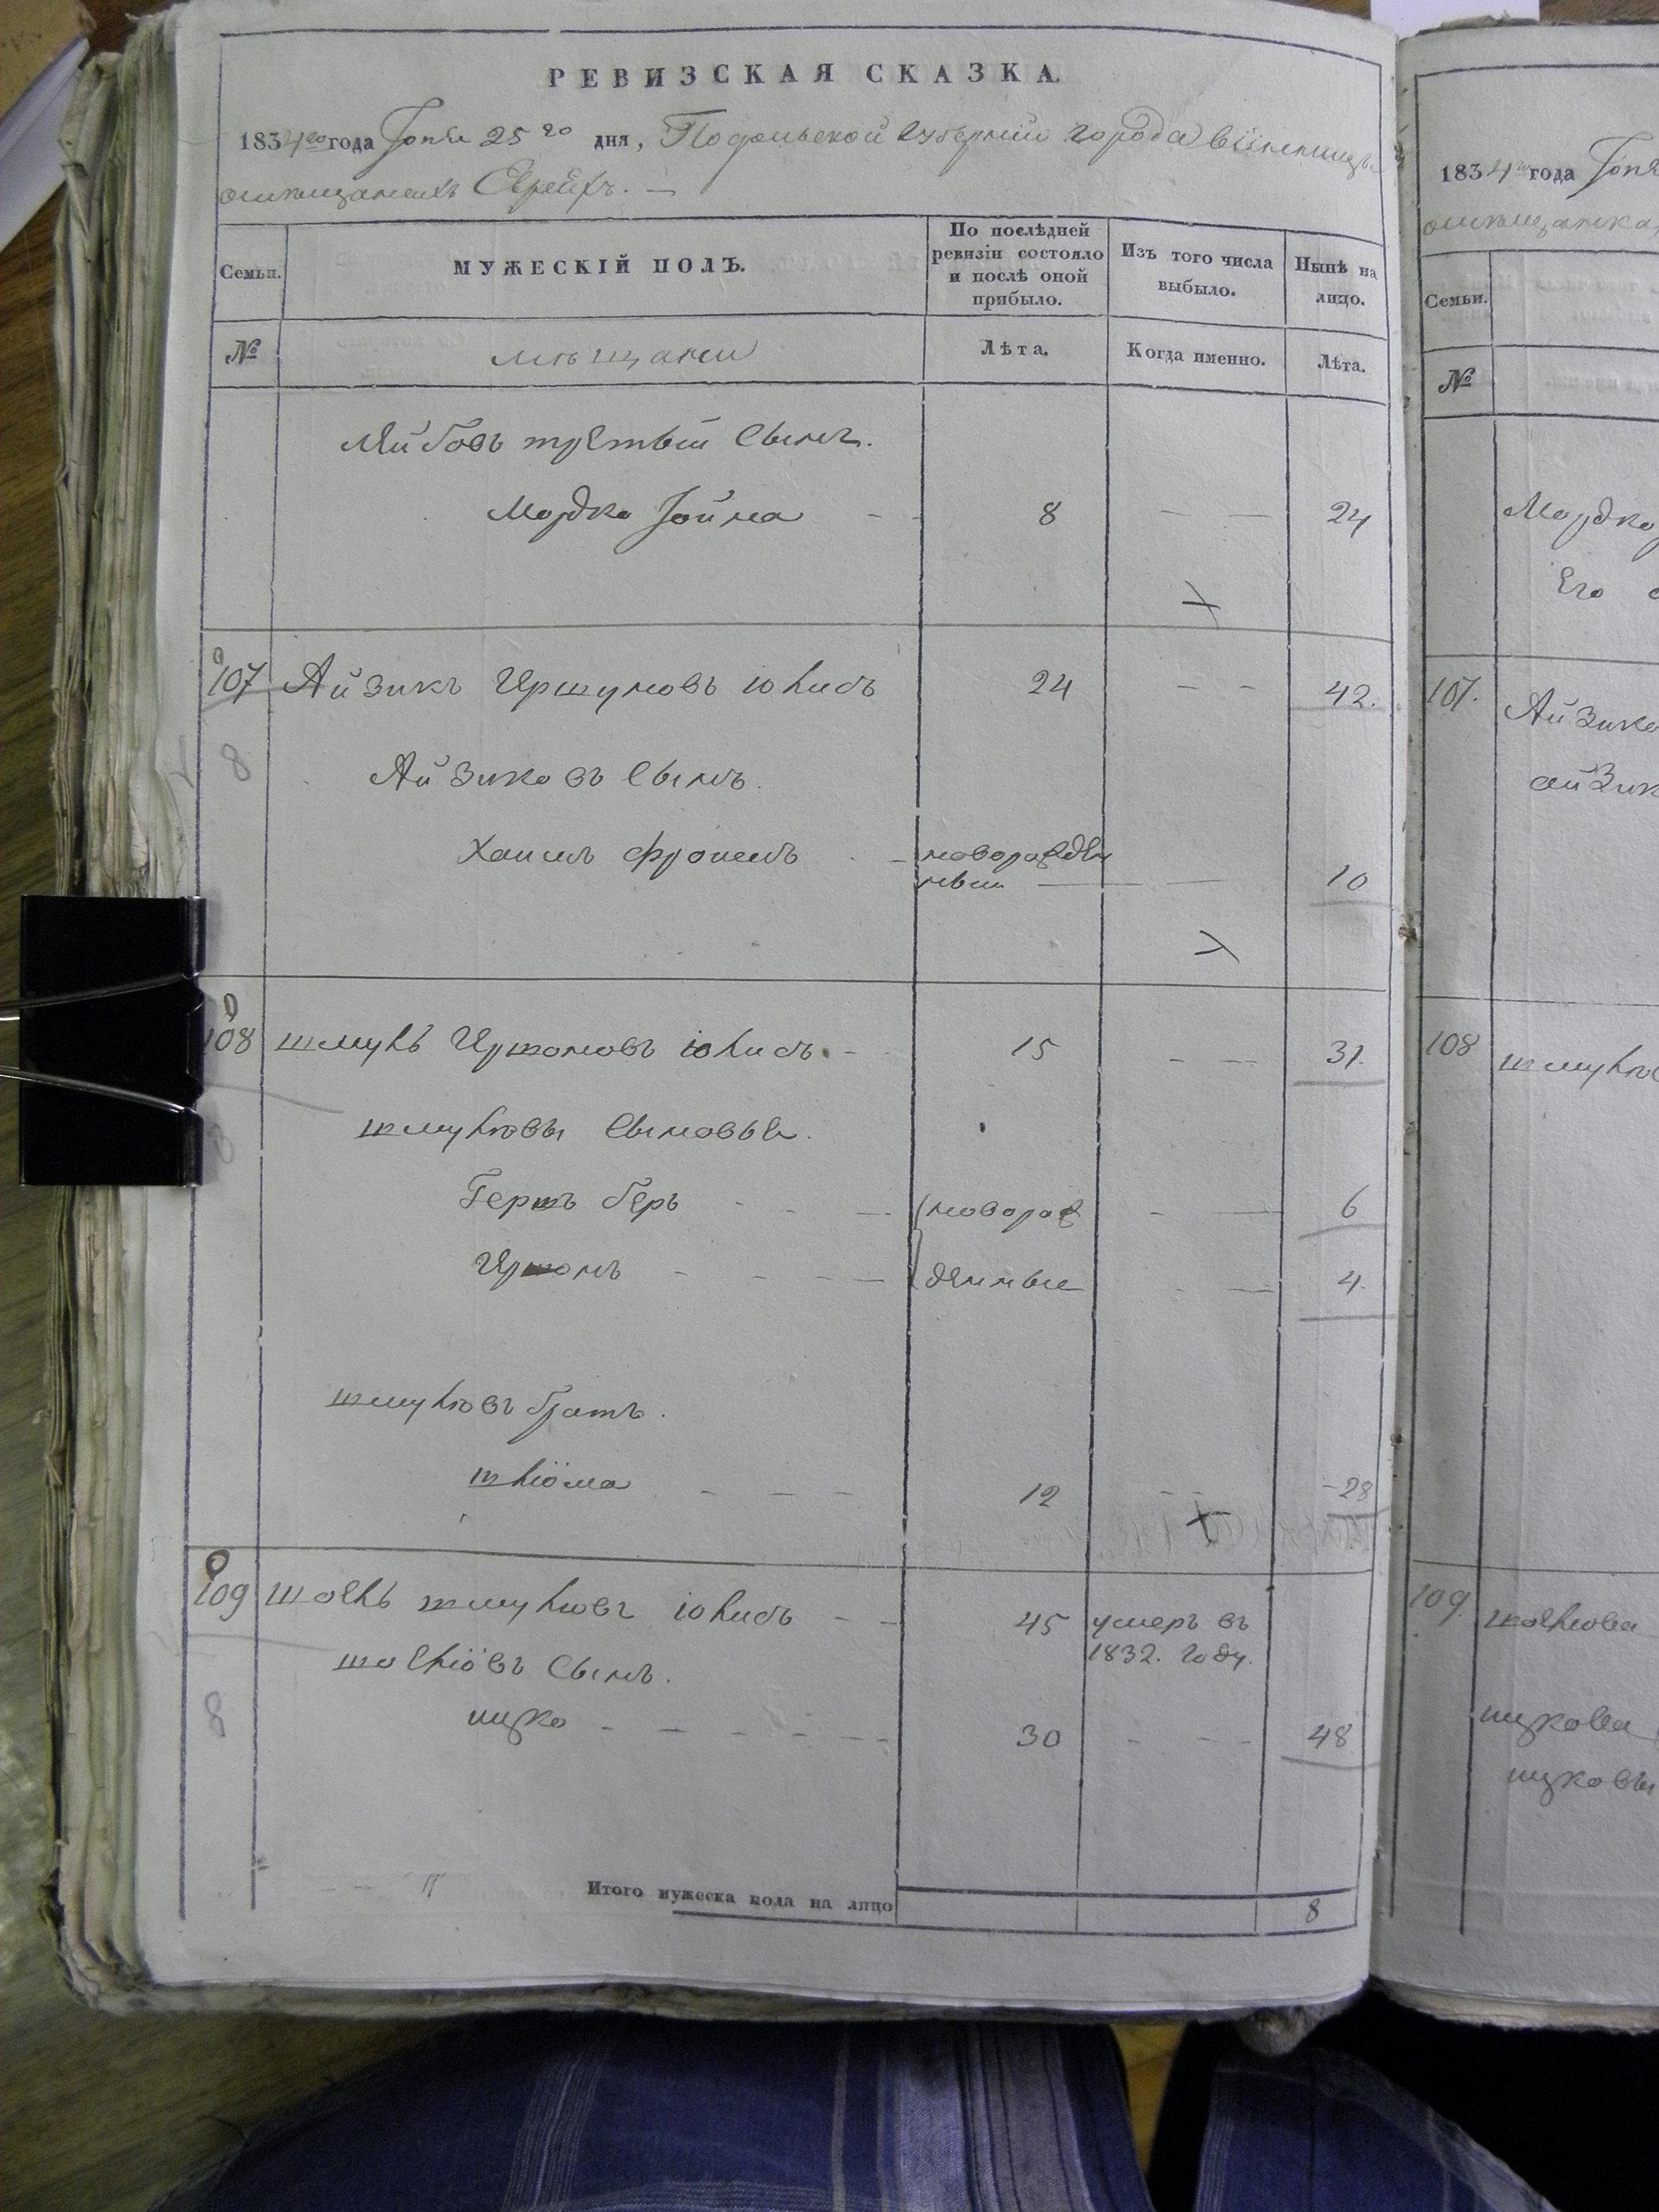 РЕВИЗСКАЯ СКАЗКА.
1834го года Іюня 25го дня, Подольской губерніи города Винницы
омѣщанехъ Евреяхъ. —
Семьи.
МУЖЕСКІЙ ПОЛЪ.
По послѣдней ревизіи состояло и послѣ оной прибыло.
Изъ того числа выбыло.
Нынѣ на лицо.
№
мѣщане
Лѣта.
Когда именно.
Лѣта.
Лейбовъ третьій сынъ.
Мордко Іойна - - 8 — — 24
107 Айзикъ Иршуновъ 24 - - 42.
8
Айзиковъ сынъ.
Хаимъ Фроимъ - новорожден
ный — — 10
108 Шмуль Иршоновъ - 15 - — 31.
Шмулювы сыновья.
Гершъ Беръ - - — новорож - — 6
Иршонъ - - - — денные - — 4.
Шмулювъ братъ.
Шліома - - - 12 - - 28
109 Шоель Шмулювъ - - 45 умеръ въ
1832. году.
Шоеліовъ сынъ.
8
Ицко - - - - - 30 - - - 48
Итого мужеска пола на лицо 8
1834го года
омѣщанка
Семьи.
№
Мордко
Его
107.
Айзико
айзик
108
109.
ицкова
ицковы